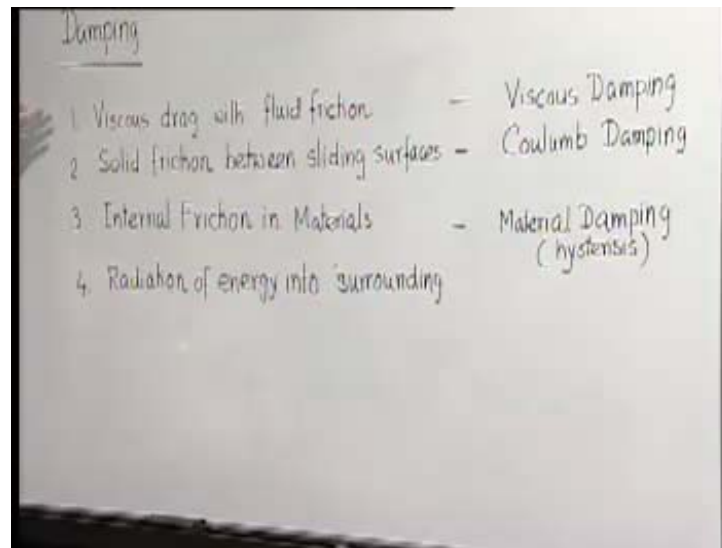 Damping
1 Viscous drag with fluid friction - Viscous Damping
2 Solid friction between sliding surfaces - Coulumb Damping
3 Internal Friction in Materials - Material Damping
(hystensis)
4. Radiation of energy into surrounding